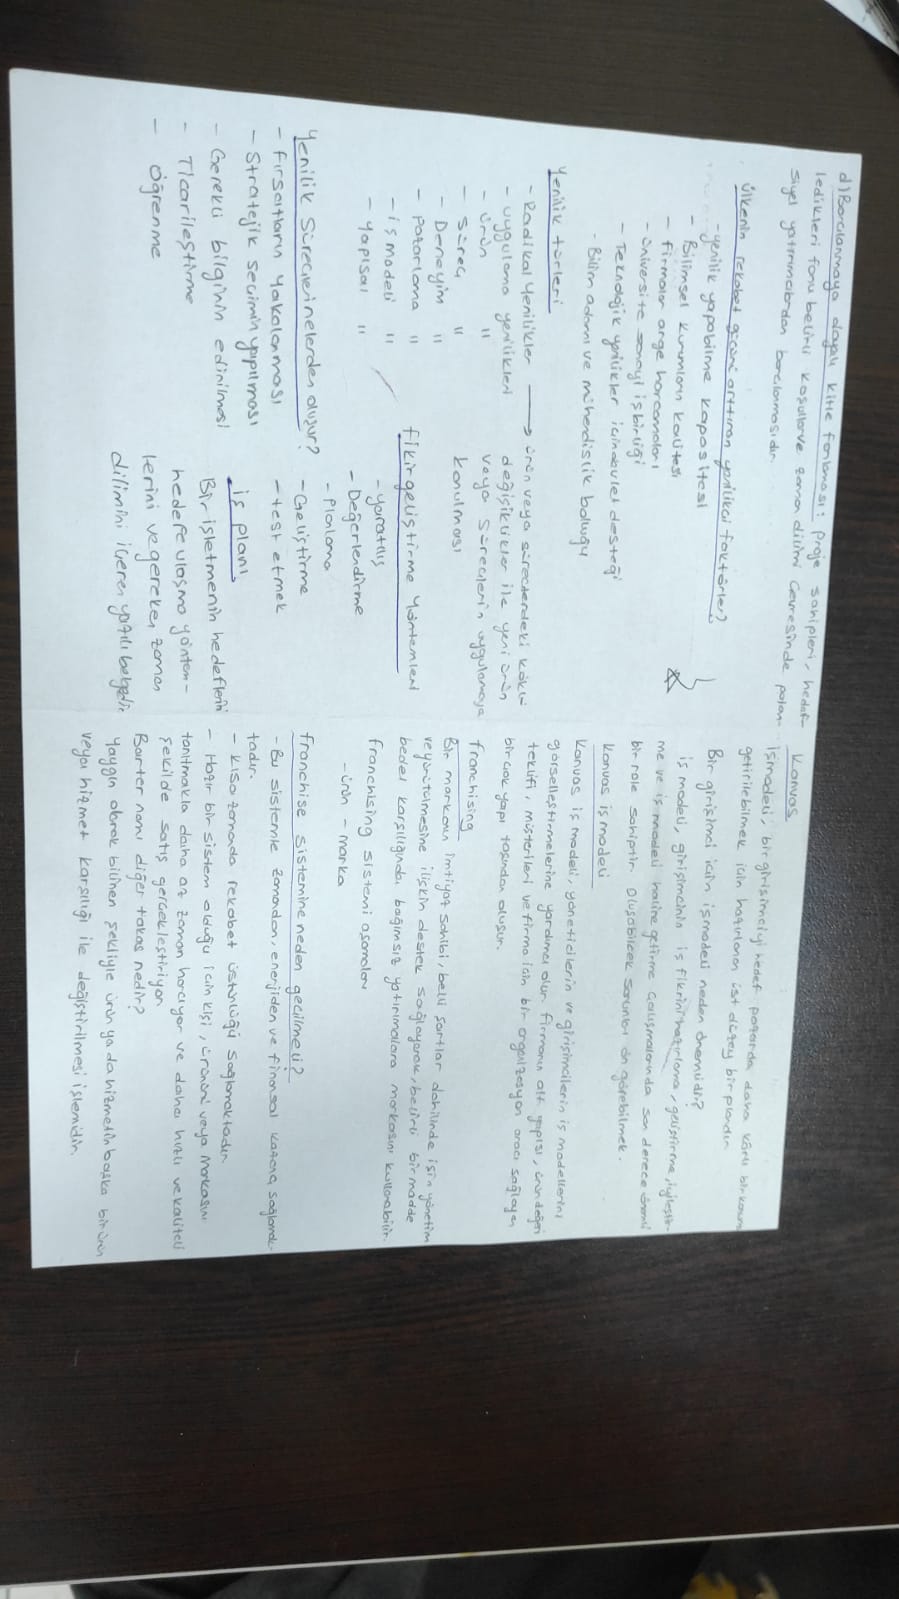 d) Borçlanmaya dayalı kitle fonlaması: Proje sahipleri, hedef-
ledikleri fonu belirli koşullar ve zaman dilimi çevresinde potan-
siyel yatırımcılardan borçlanmasıdır.
Ülkenin rekabet gücünü arttıran yenilikçi faktörler?
- yenilik yapabilme kapasitesi
- Bilimsel kurumların kalitesi
- firmalar arge harcamaları
- üniversite sanayi işbirliği
- Teknolojik yenilikler için devlet desteği
- Bilim adamı ve mühendislik bolluğu
Yenilik türleri
- Radikal Yenilikler → ürün veya süreçlerdeki köklü
değişiklikler ile yeni ürün
veya süreçlerin uygulamaya
konulması
- uygulama yenilikleri
- ürün "
- süreç "
- Deneyim "
- Pazarlama "
- iş modeli "
- Yapısal "
Yenilik Süreçleri nelerden oluşur?
- Fırsatların Yakalanması
- Stratejik seçimin yapılması
- Gerekli bilginin edinilmesi
- Ticarileştirme
- Öğrenme
fikir geliştirme Yöntemleri
- yaratılış
- Değerlendirme
- Planlama
- Geliştirme
- test etmek
iş planı
Bir işletmenin hedeflerini
hedefe ulaşma yöntem-
lerini ve gereken zaman
dilimini içeren yazılı belgedir.
Kanvas
İşmodeli, bir girişimciyi hedef pazarda daha kârlı bir konuma
getirilebilmek için hazırlanan üst düzey bir plandır.
Bir girişimci için işmodeli neden önemlidir?
iş modeli, girişimcinin iş fikrini hazırlama, geliştirme, iyileştir-
me ve iş modeli haline getirme çalışmalarında son derece önemli
bir role sahiptir. Oluşabilecek sorunları ön görebilmek.
Kanvas iş modeli
Kanvas iş modeli, yöneticilerin ve girişimcilerin iş modellerini
görselleştirmelerine yardımcı olur. firmanın alt yapısı, ürün değeri
teklifi, müşterileri ve firma için bir organizasyon aracı sağlayan
bir çok yapı taşından oluşur.
franchising
Bir markanın imtiyaz sahibi, belli şartlar dahilinde işin yönetim
ve yürütülmesine ilişkin destek sağlayarak, belirli bir madde
bedel karşılığında bağımsız yatırımcılara markasını kullanabilir.
franchising sistemi aşamaları
- ürün - marka
franchise sistemine neden geçilmeli?
- Bu sistemle zamandan, enerjiden ve finansal kazanç sağlamak-
tadır.
- Kısa zamanda rekabet üstünlüğü sağlamaktadır.
- Hazır bir sistem olduğu için kişi, ürününü veya markasını
tanıtmakla daha az zaman harcıyor ve daha hızlı ve kaliteli
şekilde satış gerçekleştiriyor.
Barter namı diğer takas nedir?
Yaygın olarak bilinen şekliyle ürün ya da hizmetin başka bir ürün
veya hizmet karşılığı ile değiştirilmesi işlemidir.